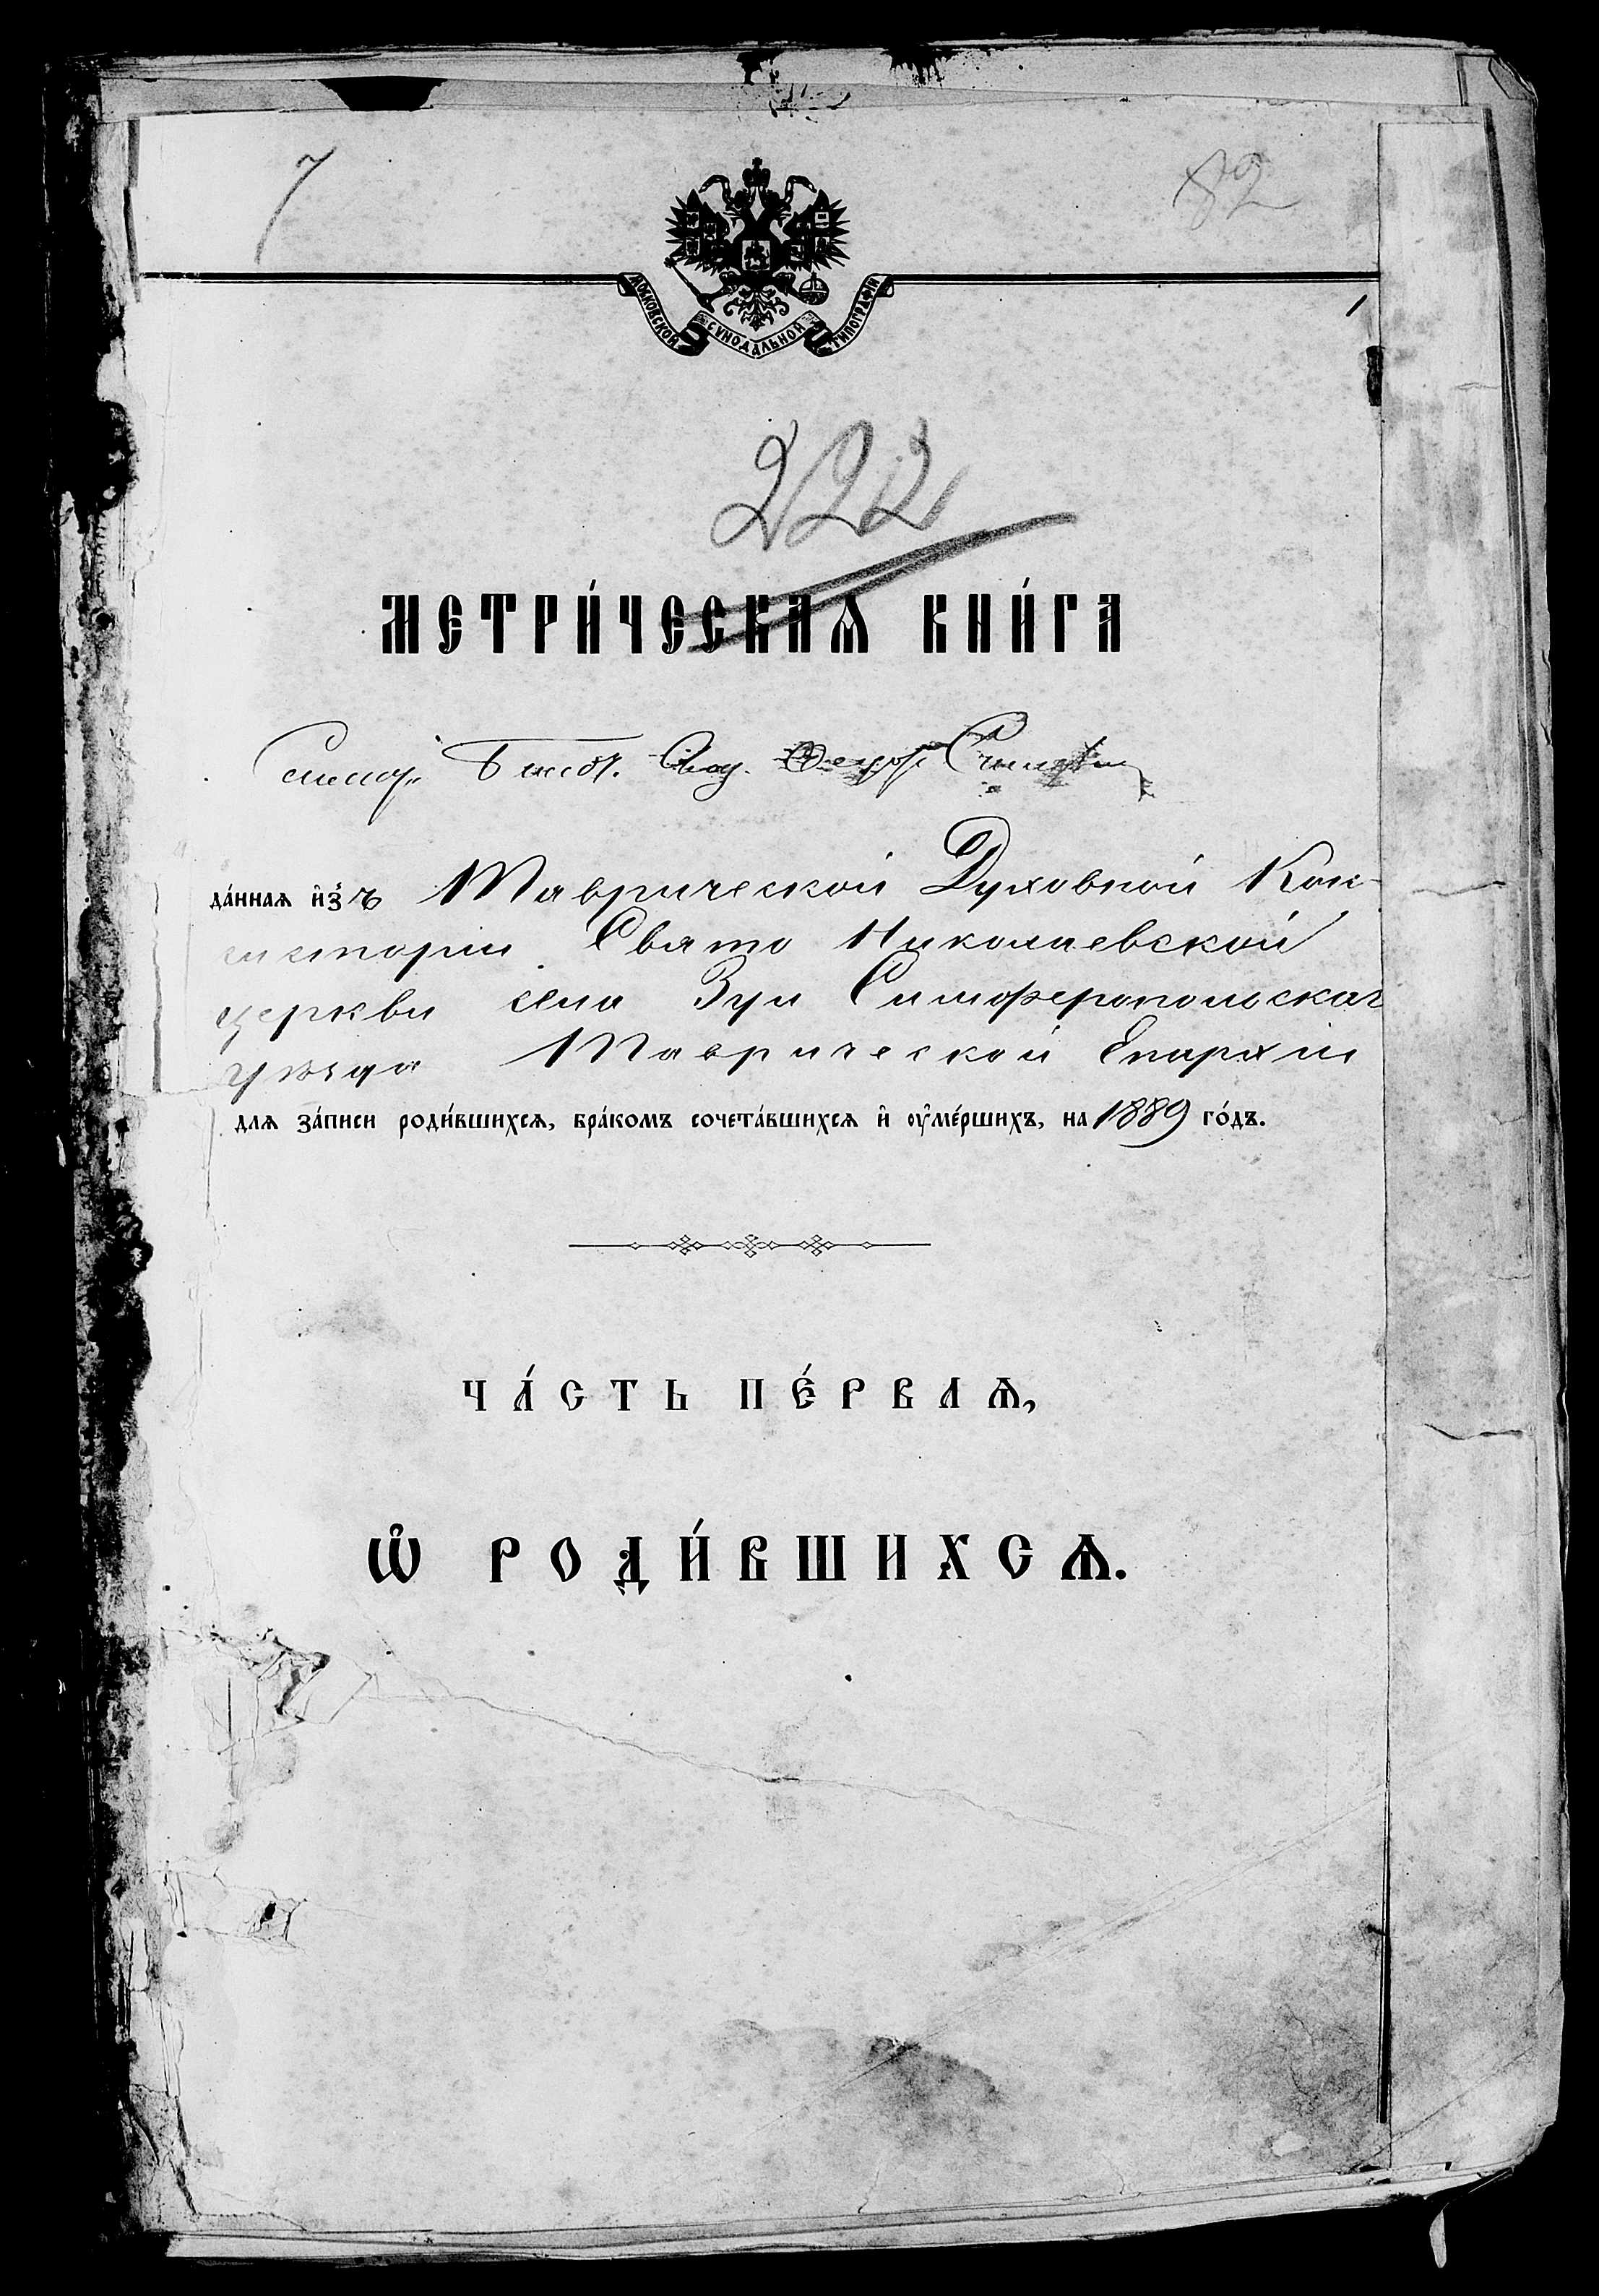 7
82
МОСКОВСКОЙ СѴНОДАЛЬНОЙ ТИПОГРАФІИ
222
МЕТРИ́ЧЕСКАѦ КНИ́ГА
да́ннаѧ и҆́зъ Таврической Духовной Кон-
систоріи Свято Николаевской
церкви села Зуи Симферопольскаг
уѣзда Таврической Епархіи
длѧ за́писи роди́вшихсѧ, бра́комъ сочета́вшихсѧ и҆ ᲂу҆ме́ршихъ, на 1889 го́дъ.
ЧА́СТЬ ПЕ́РВАѦ,
Ѽ РОДИ́ВШИХСѦ.